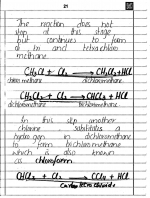 21
The reaction does not
stop at this stage
but continues to form
di tri and tetrachloro
methane.
CH3Cl + Cl2 → CH2Cl2 + HCl
chloromethane dichloromethane
CH2Cl2 + Cl2 → CHCl3 + HCl
dichloromethane trichloromethane
In this step another
chlorine substitutes a
hydrogen in dichloromethane
to form trichloromethane
which is also known
as chloroform.
CHCl3 + Cl2 → CCl4 + HCl
Carbon tetrachloride